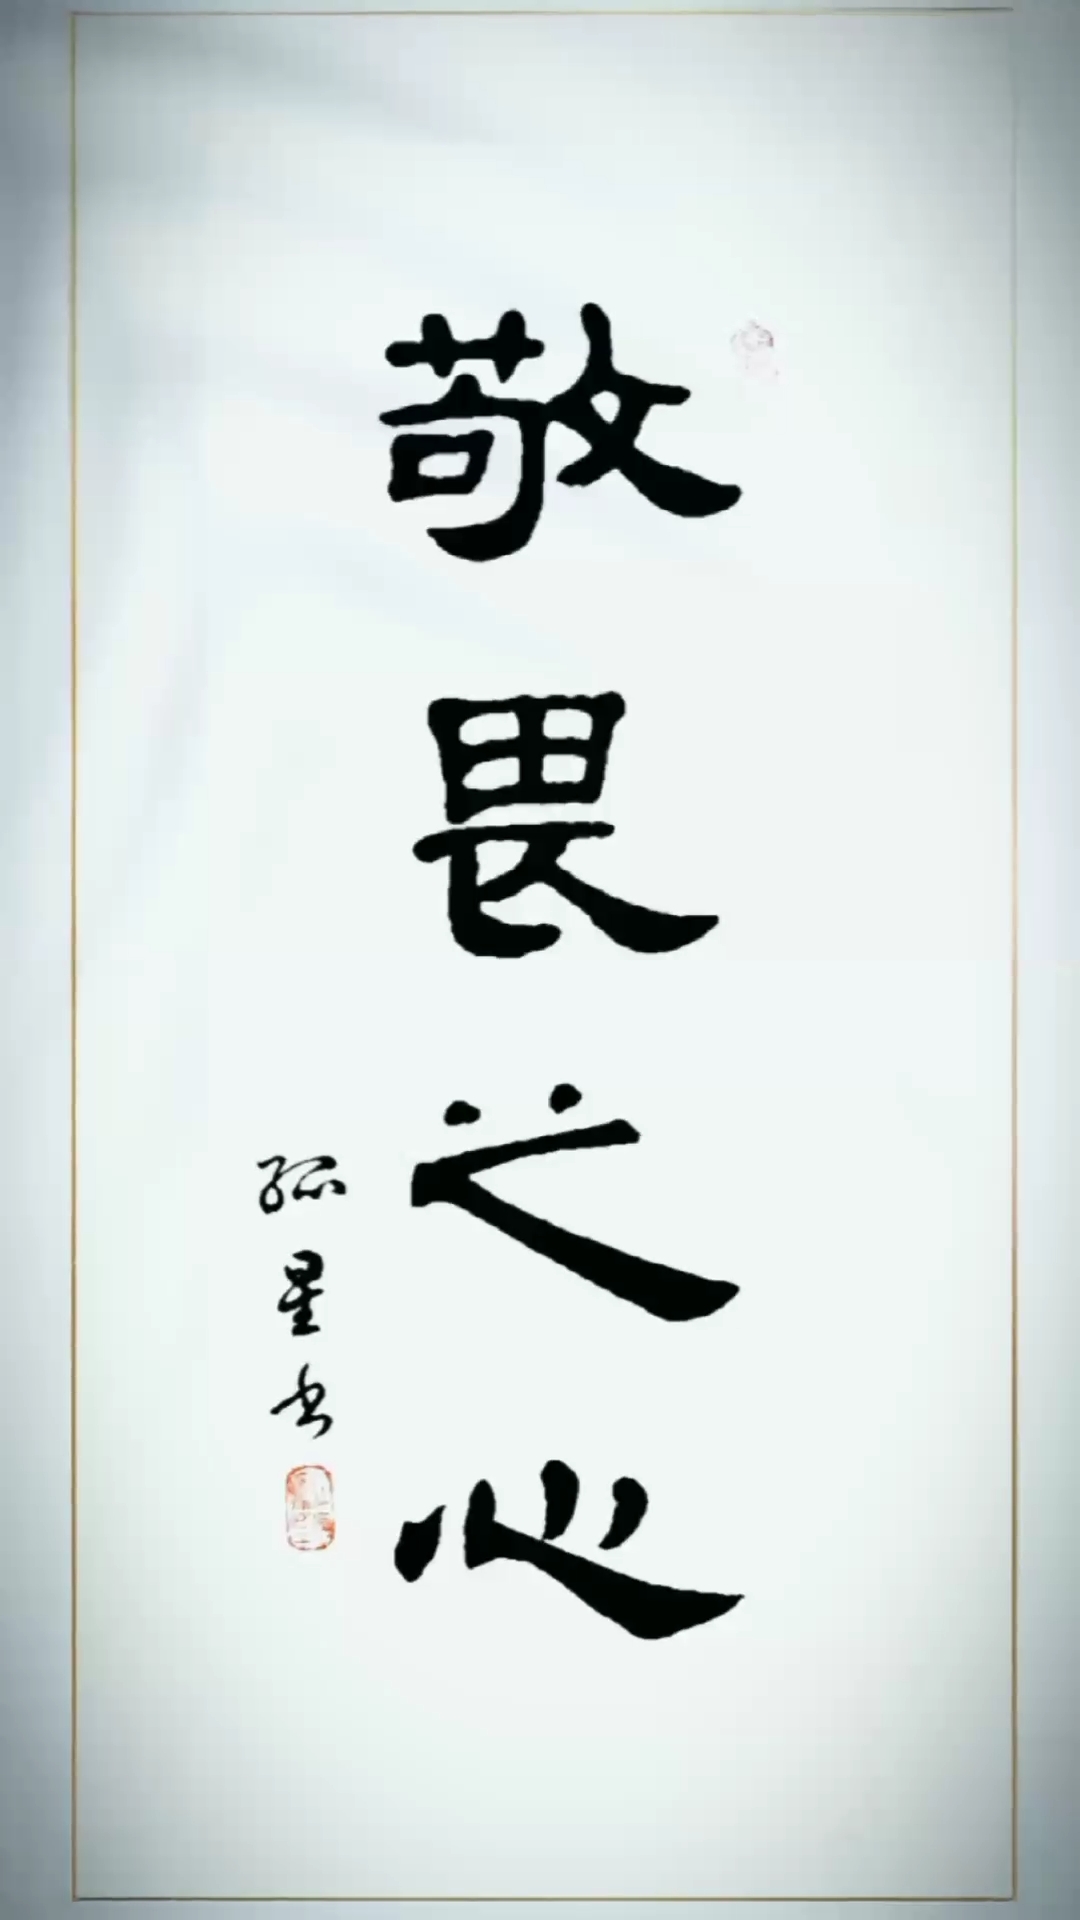 敬畏之心
孤星书